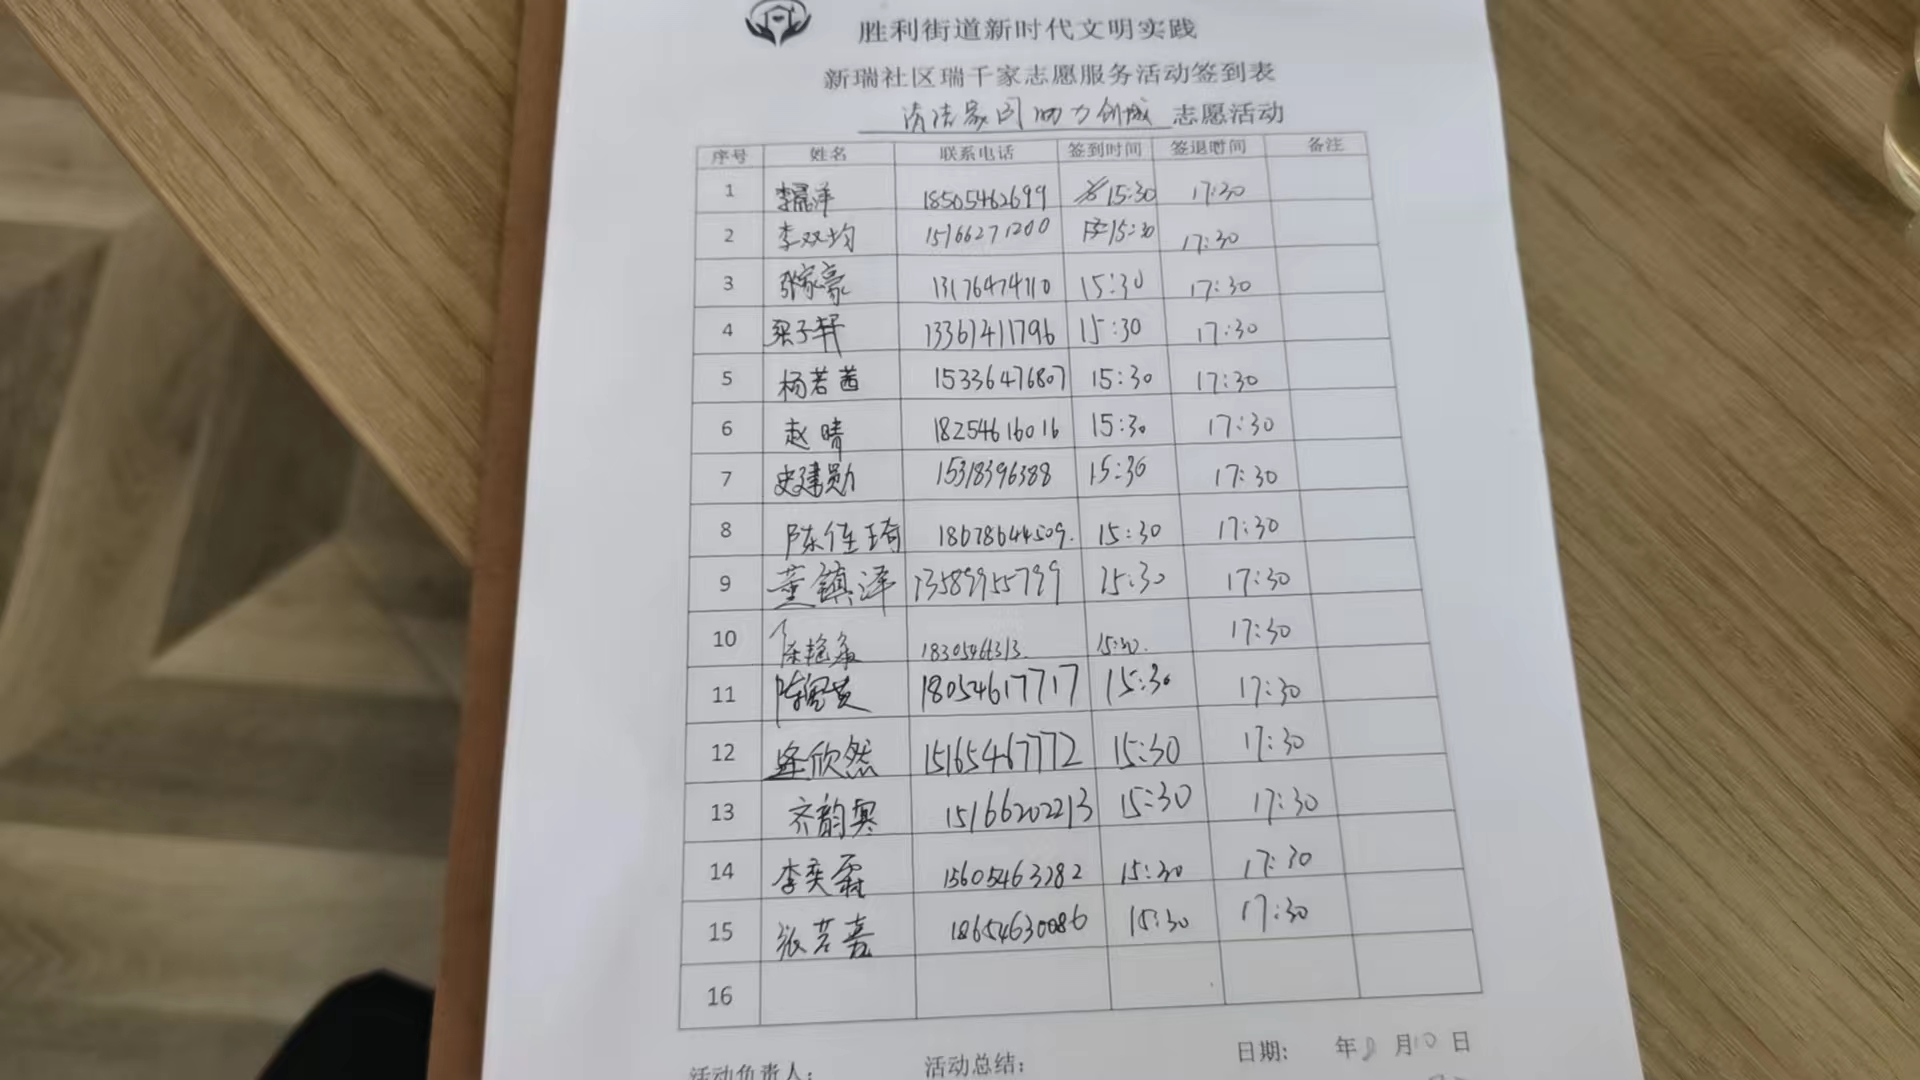 胜利街道新时代文明实践
新瑞社区瑞千家志愿服务活动签到表
清洁家园 助力创城 志愿活动
序号 姓名 联系电话 签到时间 签退时间 备注
1 李晨洋 18505462699 15:30 17:30
2 李双均 15166271200 15:30 17:30
3 张家豪 13176474110 15:30 17:30
4 梁子轩 13361411796 15:30 17:30
5 杨若茜 15336476807 15:30 17:30
6 赵晴 18254616016 15:30 17:30
7 史建勋 15318396388 15:30 17:30
8 陈佳琦 18678644509. 15:30 17:30
9 董镇泽 13589955799 15:30 17:30
10 陈艳 1830546313. 15:30. 17:30
11 陈 18054617717 15:30 17:30
12 逄欣然 15165467772 15:30 17:30
13 齐韵 15166202213 15:30 17:30
14 李奕霖 15605463282 15:30 17:30
15 张若熹 18654630086 15:30 17:30
16
活动负责人: 活动总结: 日期: 年8月10日